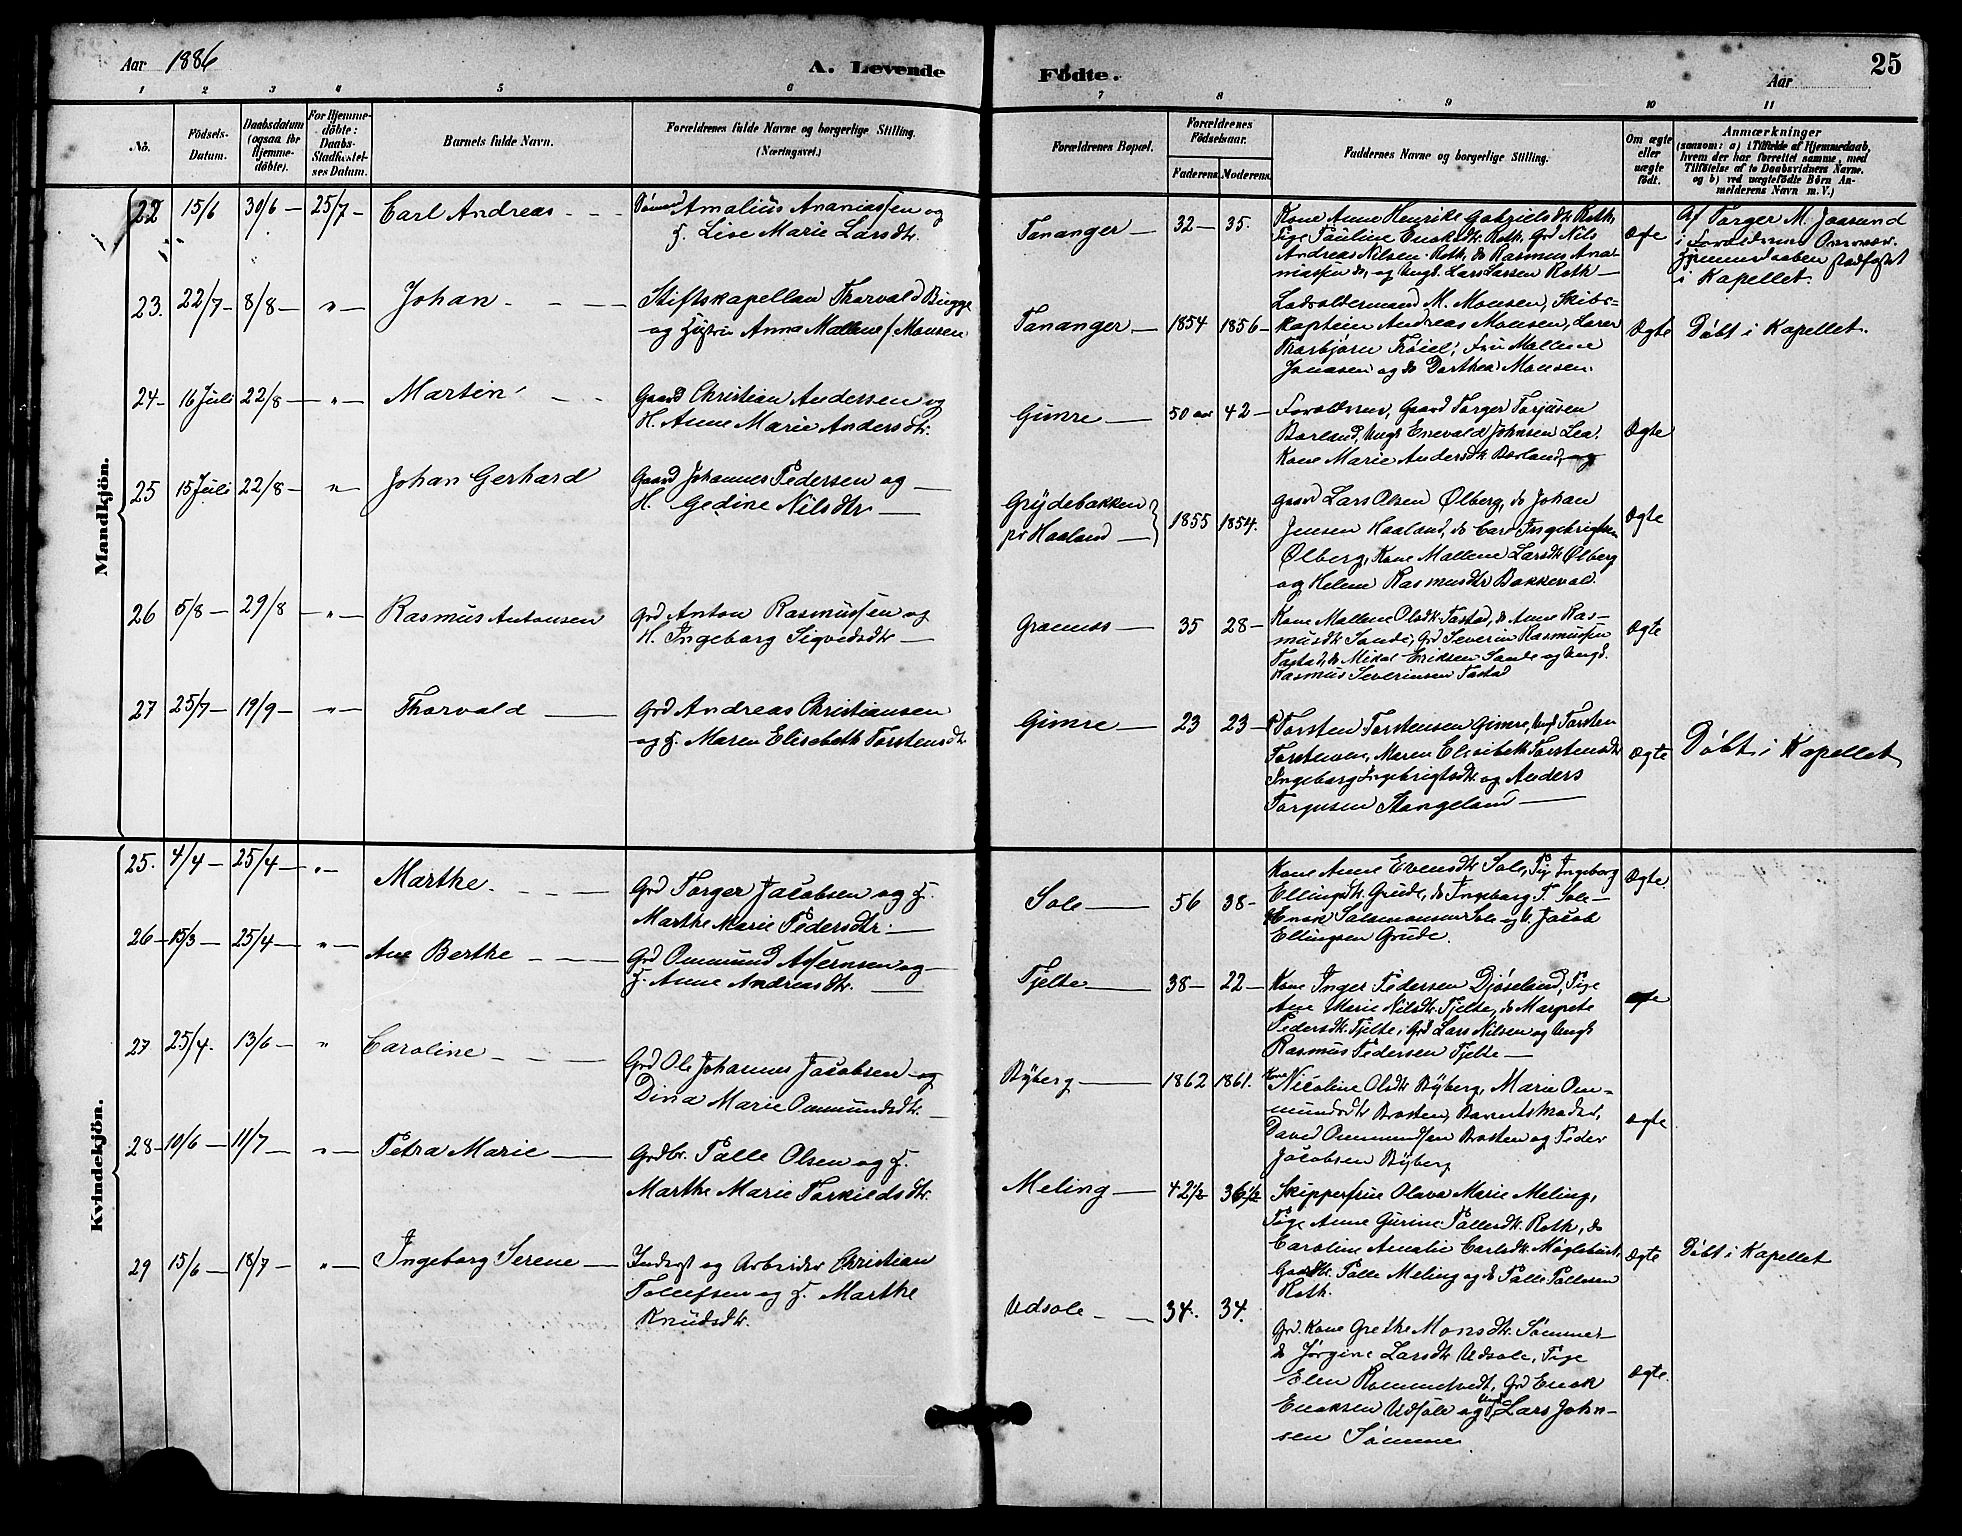 Aar 1886
A. Levende
Fødte.
Aar
25
1 2 3 4 5 6 7 8 9 10 11
No.
Födsels-
Datum.
Daabsdatum
(ogsaa for
Hjemme-
döbte).
For Hjemme-
döbte:
Daabs-
Stadfæstel-
ses Datum.
Barnets fulde Navn.
Forældrenes fulde Navne og borgerlige Stilling.
(Næringsvei.)
Forældrenes Bopæl.
Forældrenes
Födselsaar.
Faderens. Moderens.
Faddernes Navne og borgerlige Stilling.
Om ægte
eller
uægte
födt.
Anmærkninger
(saasom: a) i Tilfælde af Hjemmedaab,
hvem der har forrettet samme, med
Tilföielse af to Daabsvidners Navne.
og b) ved uægtefödte Börn An-
melderens Navn m. V.)
Mandkjön.
22 15/6 30/6 — 25/7 — Carl Andreas
Amalius Ananiassen og
F. Lise Marie Larsdtr.
Tananger — 32 — 35.
Kone Anne Henrike Gabrielsdtr Roth,
Pige Pauline Enoksdtr. Roth, Grd Nils
Andreas Nilsen Roth, do Rasmus Ana-
niassen do, og Ungk. Lars Larsen Roth —
Ægte
Af Torger M. Joasund
i Forældrenes
Hjemmedaaben stadfæstet
i Kapellet.
23. 22/7 — 8/8 — " — Johan
Stiftskapellan Thorvald Bugge
og Hustru Anna Mallene f. Monsen
Tananger — 1854 1856 —
Lodsoldermand M. Monsen, Skibs-
kaptein Andreas Monsen, Lærer
Thorbjørn Trøiel, Fru Mallene
Jonassen og do Dorthea Monsen.
Ægte
Döbt i Kapellet.
24 — 16 Juli 22/8 — " — Martin
Gaard Christian Andersen og
H. Anne Marie Andersdtr.
Gimre — 50 aar 42 —
Forældrene, Gaard Torger Torjusen
Borland, Ungk Enevald Johnsen Lea.
Kone Marie Andersdtr Borland, og
Ægte
25 15 Juli 22/8 — " Johan Gerhard
Gaard Johannes Pedersen og —
H. Gedine Nilsdtr —
Grydebakken
pr Haaland —
1855 1854.
Gaard Lars Olsen Ølberg, do Johan
Jensen Haaland, do Carl Ingebrigtsen
Ølberg, Kone Mallene Larsdtr Ølberg
og Helene Rasmusdtr Bakkevol.
Ægte
26 5/8 — 29/8 — " — Rasmus Antonsen
Grd Anton Rasmussen og
H. Ingeborg Sigvedsdtr —
Granness — 35 28 —
Kone Mallene Olsdtr Tastad, do Anne Ras-
musdtr Sande, Grd Severin Rasmussen
Tastad, do Mikal Eriksen Sande og Ungk.
Rasmus Severinsen Tastad
Ægte
27 25/7 — 19/9 — " — Thorvald —
Grd Andreas Christiansen
og F. Maren Elisabeth Torstensdtr
Gimre — 23 23 —
Torsten Torstensen Gimre, Ungk Torsten
Torstensen, Maren Elisabeth Torstensdtr
Ingeborg Ingebrigtsdtr og Anders
Torgusen Stangeland —
Ægte
Döbt i Kapellet
Kvindekjön.
25. 4/4 — 25/4 — " — Marthe
Grd Torger Jacobsen og F.
Marthe Marie Pedersdtr. —
Sole — 56 38 —
Kone Anne Evensdtr Sole, Pig Ingeborg
Ellingsdtr. Grude, do Ingeborg T. Sole —
Enok Salamonsen Sole og U. Jacob
Ellingsen Grude.
Ægte
26 — 15/3 — 25/4 — " — Ane Berthe
Grd Ommund Assernsen og —
F. Anne Andreasdtr. —
Tjelte — 38 — 22 —
Kone Inger Pedersen Djøseland, Pige
Ane Marie Nilsdtr Tjelte, do Margrete
Pedersdtr. Tjelte, Grd Lars Nilsen og Ungk
Rasmus Pedersen Tjelte —
Ægte
27 25/4. 13/6 — " Caroline
Grd Ole Johannes Jacobsen og
Dina Marie Ommundsdtr. —
Byberg — 1862 1861.
Kone Nicoline Olsdtr Byberg, Marie Om-
mundsdtr Brosten, Barnets Moder,
David Ommundsen Brosten og Peder
Jacobsen Byberg
Ægte
28 — 10/6 — 11/7 — " — Petra Marie —
Grdbr. Palle Olsen og F.
Marthe Marie Torkieldsdtr.
Meling — 42 1/2 36 1/2
Skipperfrue Olava Marie Meling,
Pige Anne Gurine Pallesdtr. Roth, do
Caroline Amalie Carlsdtr. Møglebust,
Gaardbr. Palle Meling og do Palle Pallesen
Roth.
Ægte
Döbt i Kapellet
29 15/6 — 18/7 — " — Ingeborg Serene —
Inderst og Arbeider Christian
Tollefsen og F. Marthe
Knudsdtr.
Udsole — 34. 34.
Grd. Kone Grethe Monsdtr. Sömme
do Jørgine Larsdtr Udsole, Pige
Elen Rommetvedt, Grd Enok
Enoksen Udsole og Ungk Lars John-
sen Sömme.
Ægte.